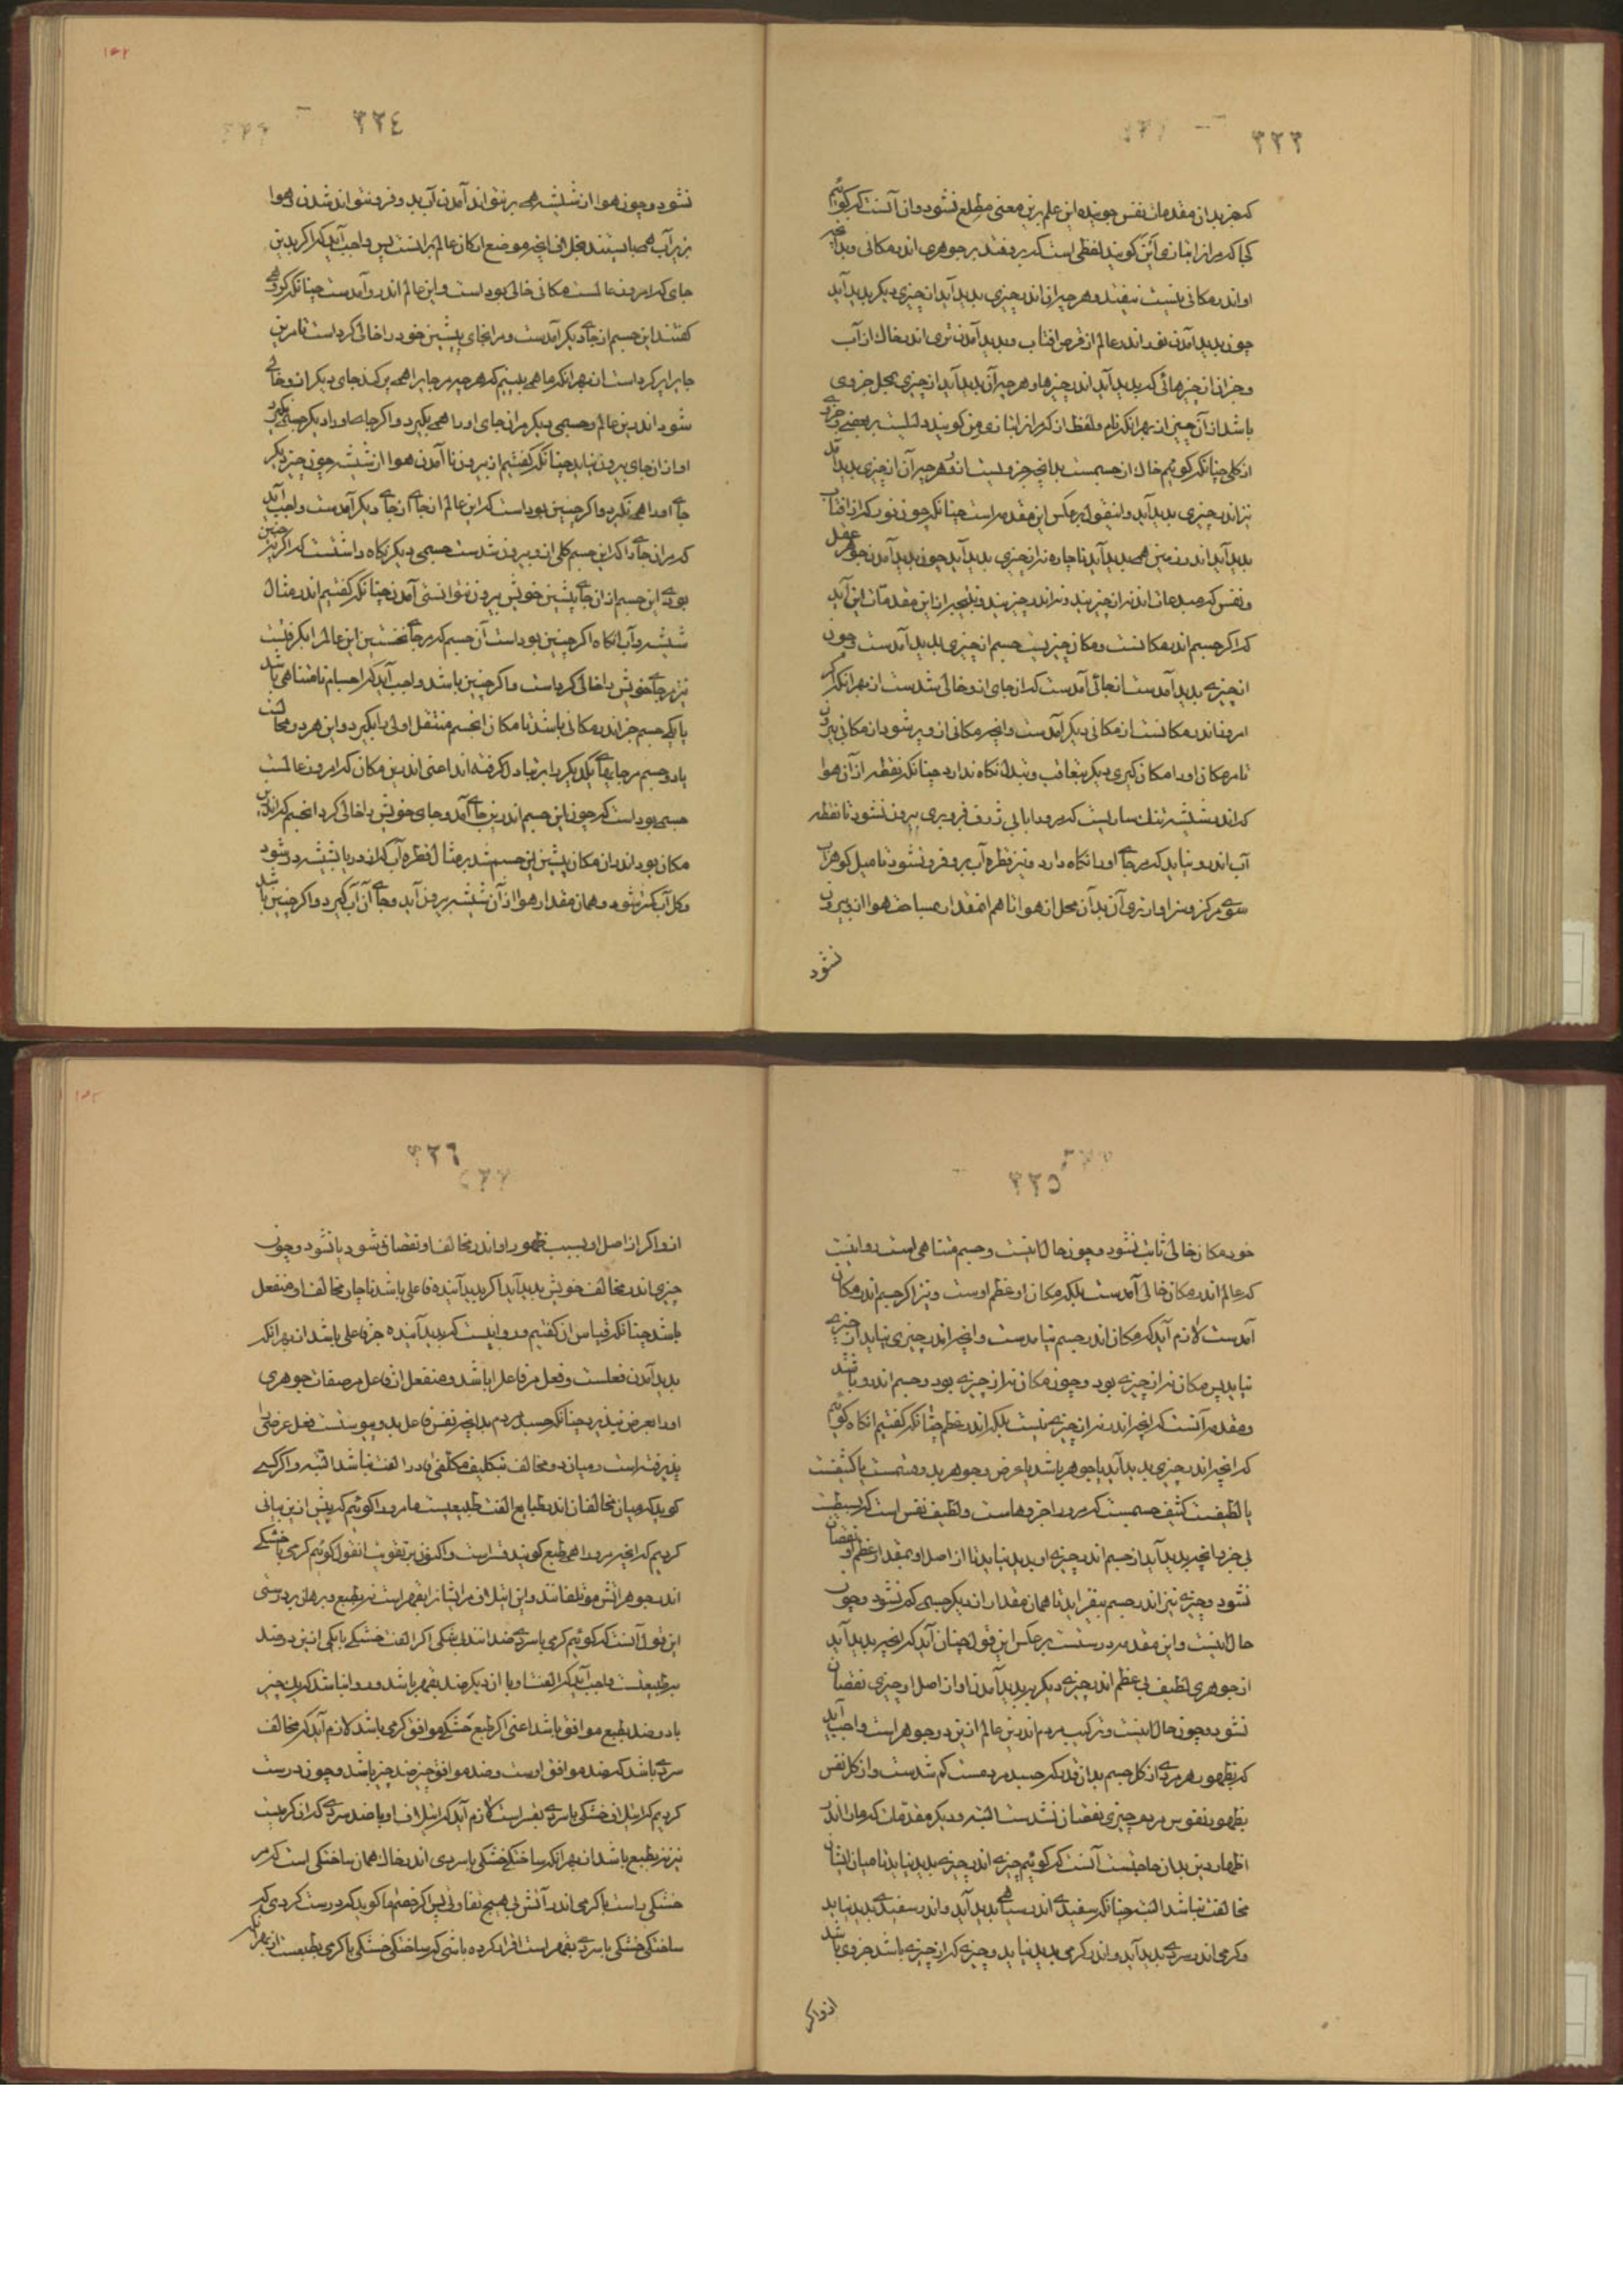 ۳۲۳
که جز بدان مقدمات نفس جوینده این علم برین معنی مطلع نشود و ان آنست که کوئیم
کجا که مرانرا بتازی این کویند لفظی است که بر وفتد بر جوهری اندر مکانی و بدانچه
او اندر مکانی نیست نیفتد و هر چیزی اندر چیزی پدید آید از چیزی دیکر پدید آید
چون پدید آمدن نور اندر عالم از قرص افتاب و پدید آمدن تری اندر خاك از آب
و جزان از چیزهائی که پدید آید اندر چیزها و هر چیزان پدید آید از چیزی بمحل جزوی
باشد ازان چیز از بهر انکه نام و لفظ از که مرانرا بتازی من کویند دلیلست بر بعضی و جزوی
از کلی چنانکه کوئیم خاك از جسمست بدانچه جزویست ازو و هر چیزان از چیزی پدید آید
نیز اندر چیزی پدید آید و اینقول بر عکس این مقدمه راست چنانکه چون نور که از افتاب
پدید آید اندر زمین همی پدید آید ناچاره نه از چیزی پدید آید چون پدید آمدن جوهر عقل
و نفس که مبدعات اند نه از چیزیند و نه اندر چیزیند و نتیجه از این مقدمات این آید
که اکر جسم اندر مکانست و مکان چیزیست جسم از چیزی پدید آمدست و چون
از چیزی پدید آمدست از جائی آمدست که ان جای ازو خالی شدست از بهر انکه اکر
امروز اندر مکانست از مکانی دیکر آمدست و انچه مکانی ازو پر شود از مکانی بیرون
تا مر مکان او را مکان کیری دیکر بتعاقب و تبدل نکاه ندارد چنانکه نقطه ازان هوا
که اندر شیشه تنك سار یست که مرورا بابی ژرف فرو بری بیرون نشود تا نقطه
آب اندرو نیاید که مر جای اورا نکاه دارد و نیز قطره آب بر و فرو نشود تا میل کوهر آب
سوی مرکز و سزاوار تری آن بدان محل از هوا تا هم انمقدار مساحت هوا ازو بیرون
نشود
۳۲٤
نشود و چون هوا از شیشه همی بر نتواند آمدن آب بدو فرو نتواند شدن و هوا
زیر آب همی بایستد بخلاف انچه موضع ارکان عالم برانست پس واجب آید که اکر بدین
جای که امروز عالمست مکانی خالی بود است و این عالم اندرو آمدست چنانکه کروهی
کفتند این جسم از جای دیکر آمدست و مر انجای پیشین خود را خالی کرد است تا مرین
جایرا پر کرد است از بهر انکه ما همی بینیم که هر چیز مر جایرا همی پر کند جای دیکر ازو خالی
شود اندرین عالم و جسمی دیکر مران جای اورا همی بکیرد و اکر جای او را دیکر جسمی نکیرد
او ازان جای بیرون نیاید چنانکه کفتیم از بیرون نا آمدن هوا از شیشه چون چیز دیکر
جای اورا همی نکیرد و اکر چنین بود است که این عالم از جای دیکر آمدست واجب آید
که مران جای را که این جسم کلی ازو بیرون شدست جسمی دیکر نکاه داشتست که اکر نه چنین
بودی این جسم ازان جای پیشین خویش بیرون نتوانستی آمدن چنانکه کفتیم اندر مثال
شیشه و آب انکاه اکر چنین بود است آن جسم که مر جای نخستین این عالم را بکرفتست
نیز مر جای خویش را خالی کرد است و اکر چنین باشد واجب آید که اجسام نامتناهی باشد
یا یکی جسم جز اندر مکانی باشد تا مکان انجسم منتقل اولی را بکیرد و این هر دو محالست
یا دو جسم مر جایهای یکدیکر را بتبادل کرفته اند اعنی اندرین مکان که امروز عالمست
جسمی بود است که چون این جسم اندرین جای آمد و جای خویش را خالی کرد انجسم که اندرین
مکان بود اندران مکان پیشین این جسم شد بر مثال قطره آب که از دریا بشیشه در شود
و کل آب کمتر شود و همان مقدار هوا ازان شیشه بیرون آید و جای آن آب کیرد و اکر چنین باشد
۳۲٥
خود مکان خالی ثابت نشود و چون حال اینست و جسم متناهی است روا نیست
که عالم اندر مکان خالی آمدست بلکه مکان او عظم اوست و نیز اکر جسم اندر مکان
آمدست لازم آید که مکان اندر جسم نیامدست و انچه اندر چیزی نیاید از چیزی
نیاید پس مکان نه از چیزی بود و چون مکان نه از چیزی بود و جسم اندرو باشد
و مقدمه آنست که انچه اندر نه از چیزی نیست بلکه اندر عظم چنانکه کفتیم انکاه کوئیم
که انچه اندر چیزی پدید آید یا جوهر باشد یا عرض و جوهر بدو قسمست یا کثیفست
یا لطیفست کثیف جسمیست که مرورا جزوهاست و لطیف نفس است که بسیطست
بی جزو انچه پدید آید از جسم اندر چیزی او پدید نیاید تا از اصل او بمقدار عظم او نقصان
نشود و چیزی نیز اندر جسم نیفزاید تا همان مقدار از دیکر جسمی کم نشود و چون
حال اینست و این مقدمه درستست بر عکس این قول چنان آید که انچه پدید آید
از جوهری لطیف بی عظم اندر چیزی دیکر بپدید آمدن او از اصل او چیزی نقصان
نشود و چون حال اینست و ترکیب مردم اندرین عالم ازین دو جوهر است واجب آید
که بظهور هر مردی از کل جسم بدان قدر که جسد مردمست کم شدست و از کل نفس
بظهور نفوس مردم چیزی نقصان نشدست البته و دیکر مقدمات که مارا اندر
اظهار دین بدان حاجتست آنست که کوئیم چیزی اندر چیزی پدید نیاید تا میان ایشان
مخالفت نباشد البته چنانکه سفیدی اندر سیاهی پدید آید و اندر سفیدی پدید نیاید
و کرمی اندر سردی پدید آید و اندر کرمی پدید نیاید و چیزی که از چیزی باشد جزوی باشد
ازو اکر
۳۲٦
ازو اکر از اصل او بسبب ظهور او اندر مخالف او نقصانی شود یا نشود و چون
چیزی اندر مخالف خویش پدید آید اکر پدید آینده فاعلی باشد ناچار مخالف او منفعل
باشد چنانکه قیاس ان کفتیم و روا نیست که پدید آینده جز فاعلی باشد از بهر انکه
پدید آمدن فعلست و فعل مر فاعل را باشد و منفعل از فاعل مر صفات جوهری
اورا بعرض بپذیرد چنانکه جسد مردم بدانچه نفس فاعل بدو پیوستست فعل عرضی را
پذیرفته است و میان دو مخالف بتکلیف مکلفی قادر الفت نباشد البته و اکر کسی
کوید که میان مخالفان اندر طبایع الفت طبیعیست ما مرورا کوئیم که پیش ازین بیانی
کردیم که انچه مرورا همی طبع کویند قسر است و اکنون بر تقویت انقول کوئیم کرمی با خشکی
اندر جوهر آتش موتلفانند و این ایتلاف مر ایشانرا بقهر است نه بطبع و برهان بر درستی
این قول آنست که کوئیم کرمی با سردی ضدانند بی شکی اکر الفت خشکی با یکی ازین دو ضد
بر طبعیست واجب آید که الفت او با ان دیکر ضد بقهر باشد و روا نباشد که یك چیز
با دو ضد بطبع موافق باشد اعنی اکر طبع خشکی موافق کرمی باشد لازم آید که مخالف
سردی باشد که ضد موافق اوست و ضد موافق چیز ضد چیز باشد و چون درست
کردیم که ایتلاف خشکی با سردی بقسر است لازم آید که ایتلاف او با ضد سردی که ان کرمیست
نیز نه بطبع باشد از بهر انکه ساختکی خشکی با سردی اندر خاك همان ساختکی است که مر
خشکی راست با کرمی اندر آتش بی هیچ تفاوتی پس اکر خصم ما کوید که درست کردی که
ساختکی خشکی با سردی بقهر است اقرار کرده باشی که ساختکی خشکی با کرمی بطبعست از بهر انکه